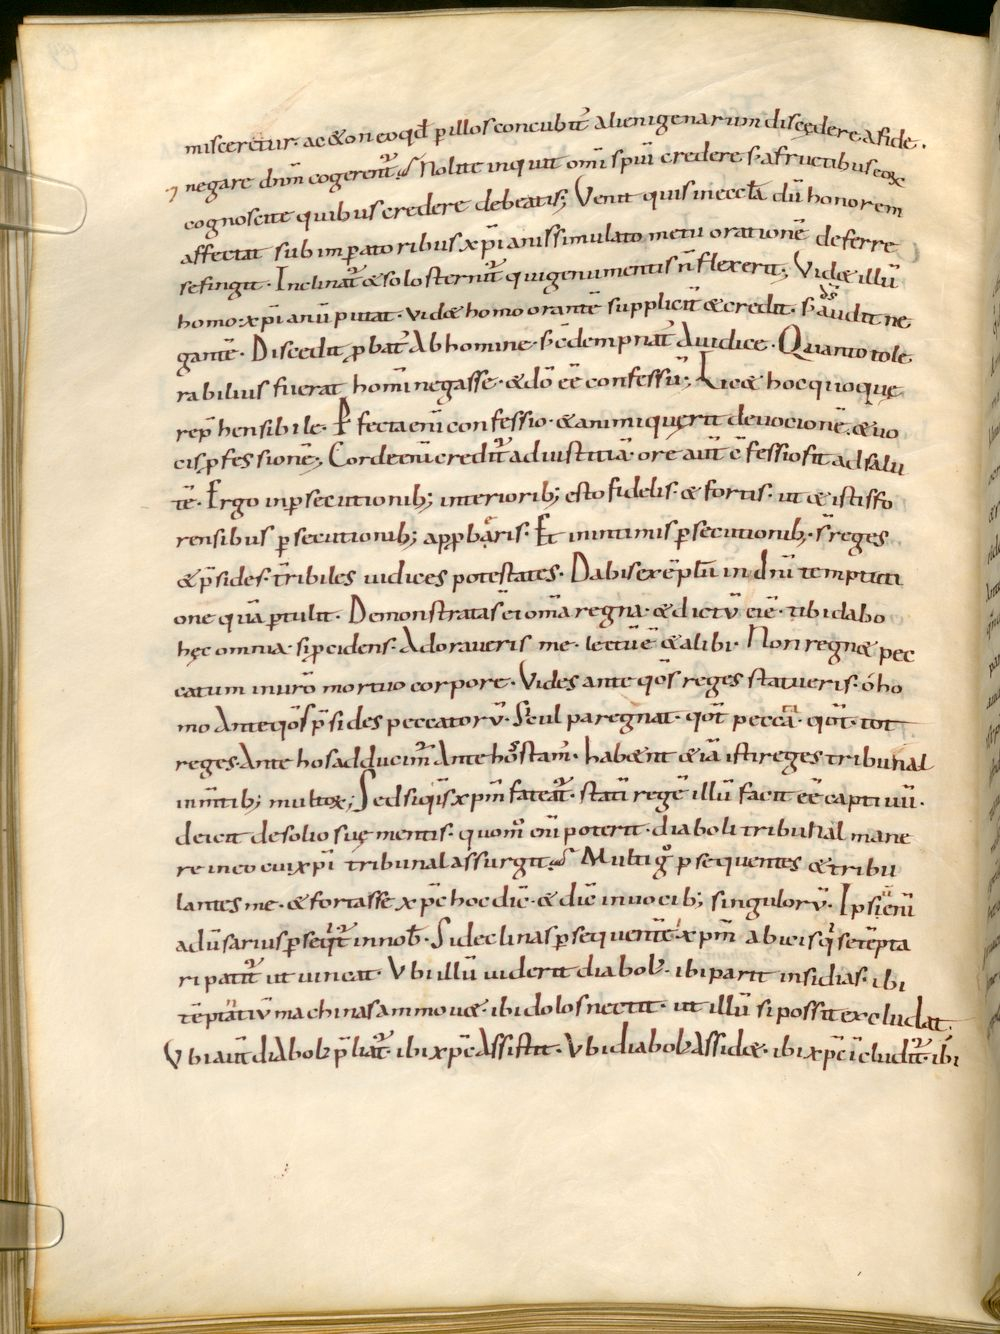 miscerẽtur· ac & on eo qđ p illos concubit᷒ alienigenarum discędere a fide·
negare dñm cogerent᷒. Nolite inquit omĩ spũi credere· s; a fructibus eoꝝ
cognoscite quibus credere debeatis; Venit quis in eccłã dũ honorem
affectat sub imꝑatoribus xp̃ianis simulato metu orationẽ deferre
se fingit· Inclinat᷒ & solo sternit᷒ qui genu mentis ñ flexerit; Vid& illũ
homo· xp̃ianũ putat· vid& homo orantẽ suppliciť & credit· s; audit d̃s ne
gantẽ· Discedit ꝓbat᷒ Ab homine· s; cõdempnat᷒ A iudice· Quanto tole
rabilius fuerat homĩ negasse· & dõ eẽ confessũ; Lic& hoc quoque
rep̃hensibile· Pfecta eñi confessio· & animi quęrit devocionẽ· & vo
cis ꝓfessionẽ; Corde enĩ credit᷒ ad iustitiã· ore aut̃ cõfessio fit ad salu
tẽ· Ergo in ꝑsecutionib; interiorib; esto fidelis· & fortis· ut & istis fo
rensibus ꝑsecutionib; appbaris· Et in intimis ꝑsecutionib;· s̃ reges
& p̃sides· t̃ribiles iudices potestates· Dabis exẽplũ in dñi temptati
one quã ptulit· Demonstratas ei omã regna· & dictũ eiẽ· tibi dabo
hęc omnia· si ꝓcidens· Adoraveris me· lectũ ẽ & alibi· Non regn& pec
catum in ur̃o mortuo corpore· Vides ante qõs reges statueris· ó ho
mo Ante qõs p̃sides peccatorũ· Si culpa regnat· qõt peccã· qõt· tot
reges· Ante hos adducim᷒ Ante hos stam᷒· habent & iã isti reges tribunal
in m̃tib; multoꝝ; Sed si qis xp̃m fateat᷒· statĩ regẽ illũ facit eẽ captiuũ·
deicit de solio suę mentis· quom̊ eñi poterit· diaboli tribunal mane
re in eo cui xp̃i tribunal assurgit. Multi g̊ ꝑsequentes & tribu
lantes me· & fortasse xp̃c hoc dic̃· & dic̃ in uocib; singulorũ· Ipsi eñi
adũsarius ꝑseqit᷒ in nob̃· Si declinas ꝑsequentẽ xp̃m abicis qi se tẽpta
ri patit᷒ ut uincat· Vbi illũ uiderit diabol᷒· ibi parit insidias· ibi
tẽptationũ machinas ammov&· ibi dolos nectit· ut illũ si possit excludat·
Vbi aut̃ diabol᷒ p̃liat᷒· ibi xp̃c Assistit· Vbi diabol᷒ Assid&· ibi xp̃c ĩcludit᷒· ibi